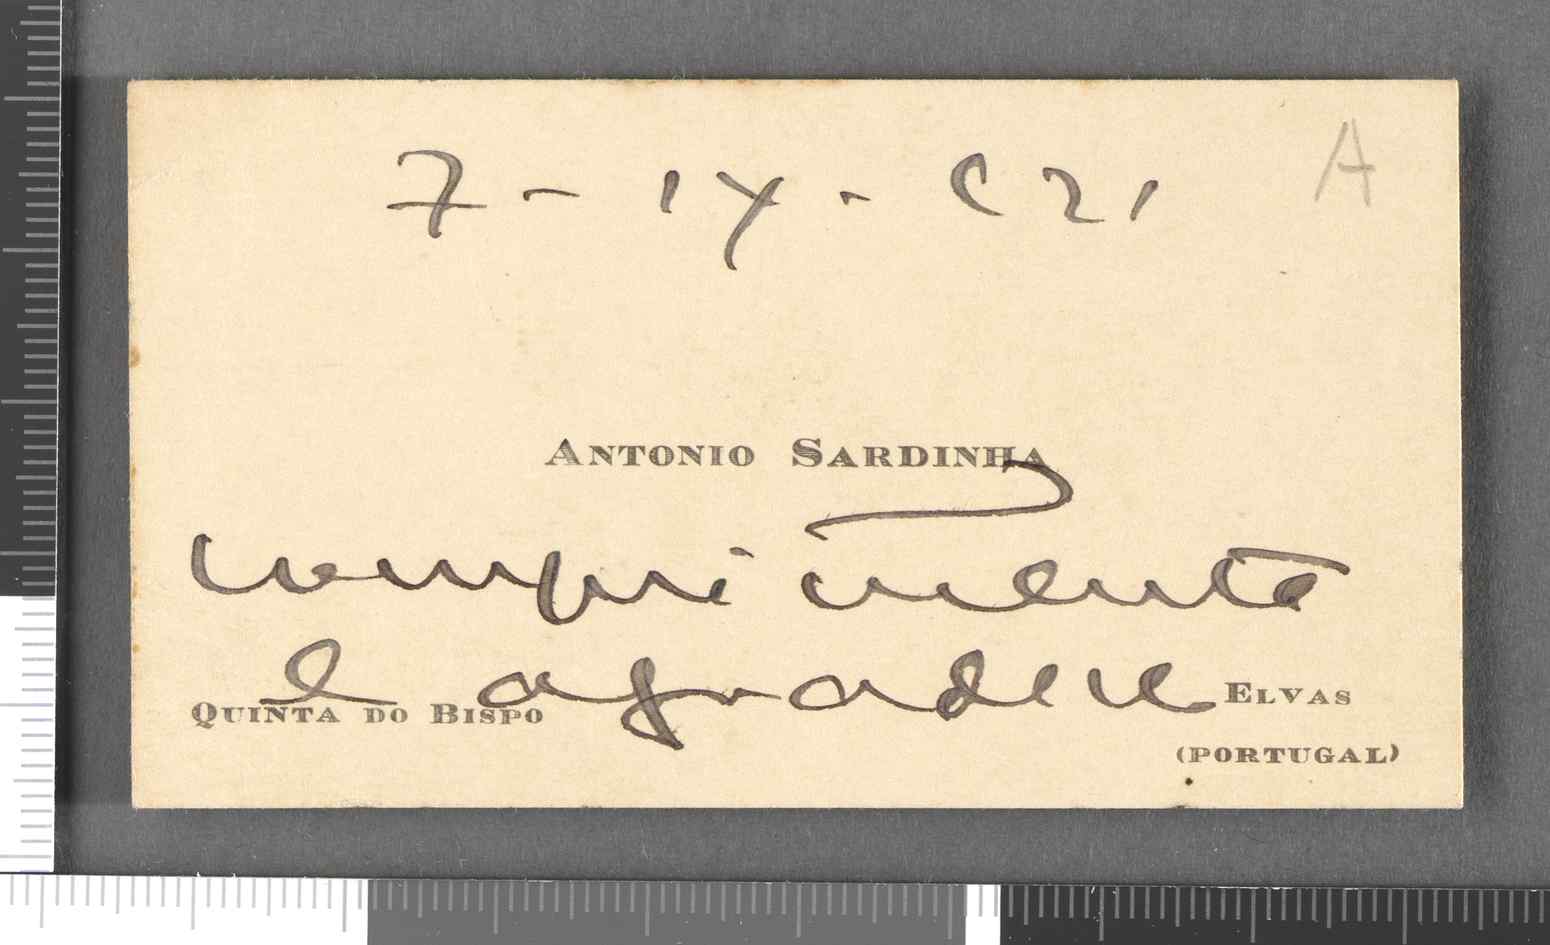 7 - IX - 921
A
ANTONIO SARDINHA
comprimenta
e agradece
QUINTA DO BISPO
ELVAS
(PORTUGAL)